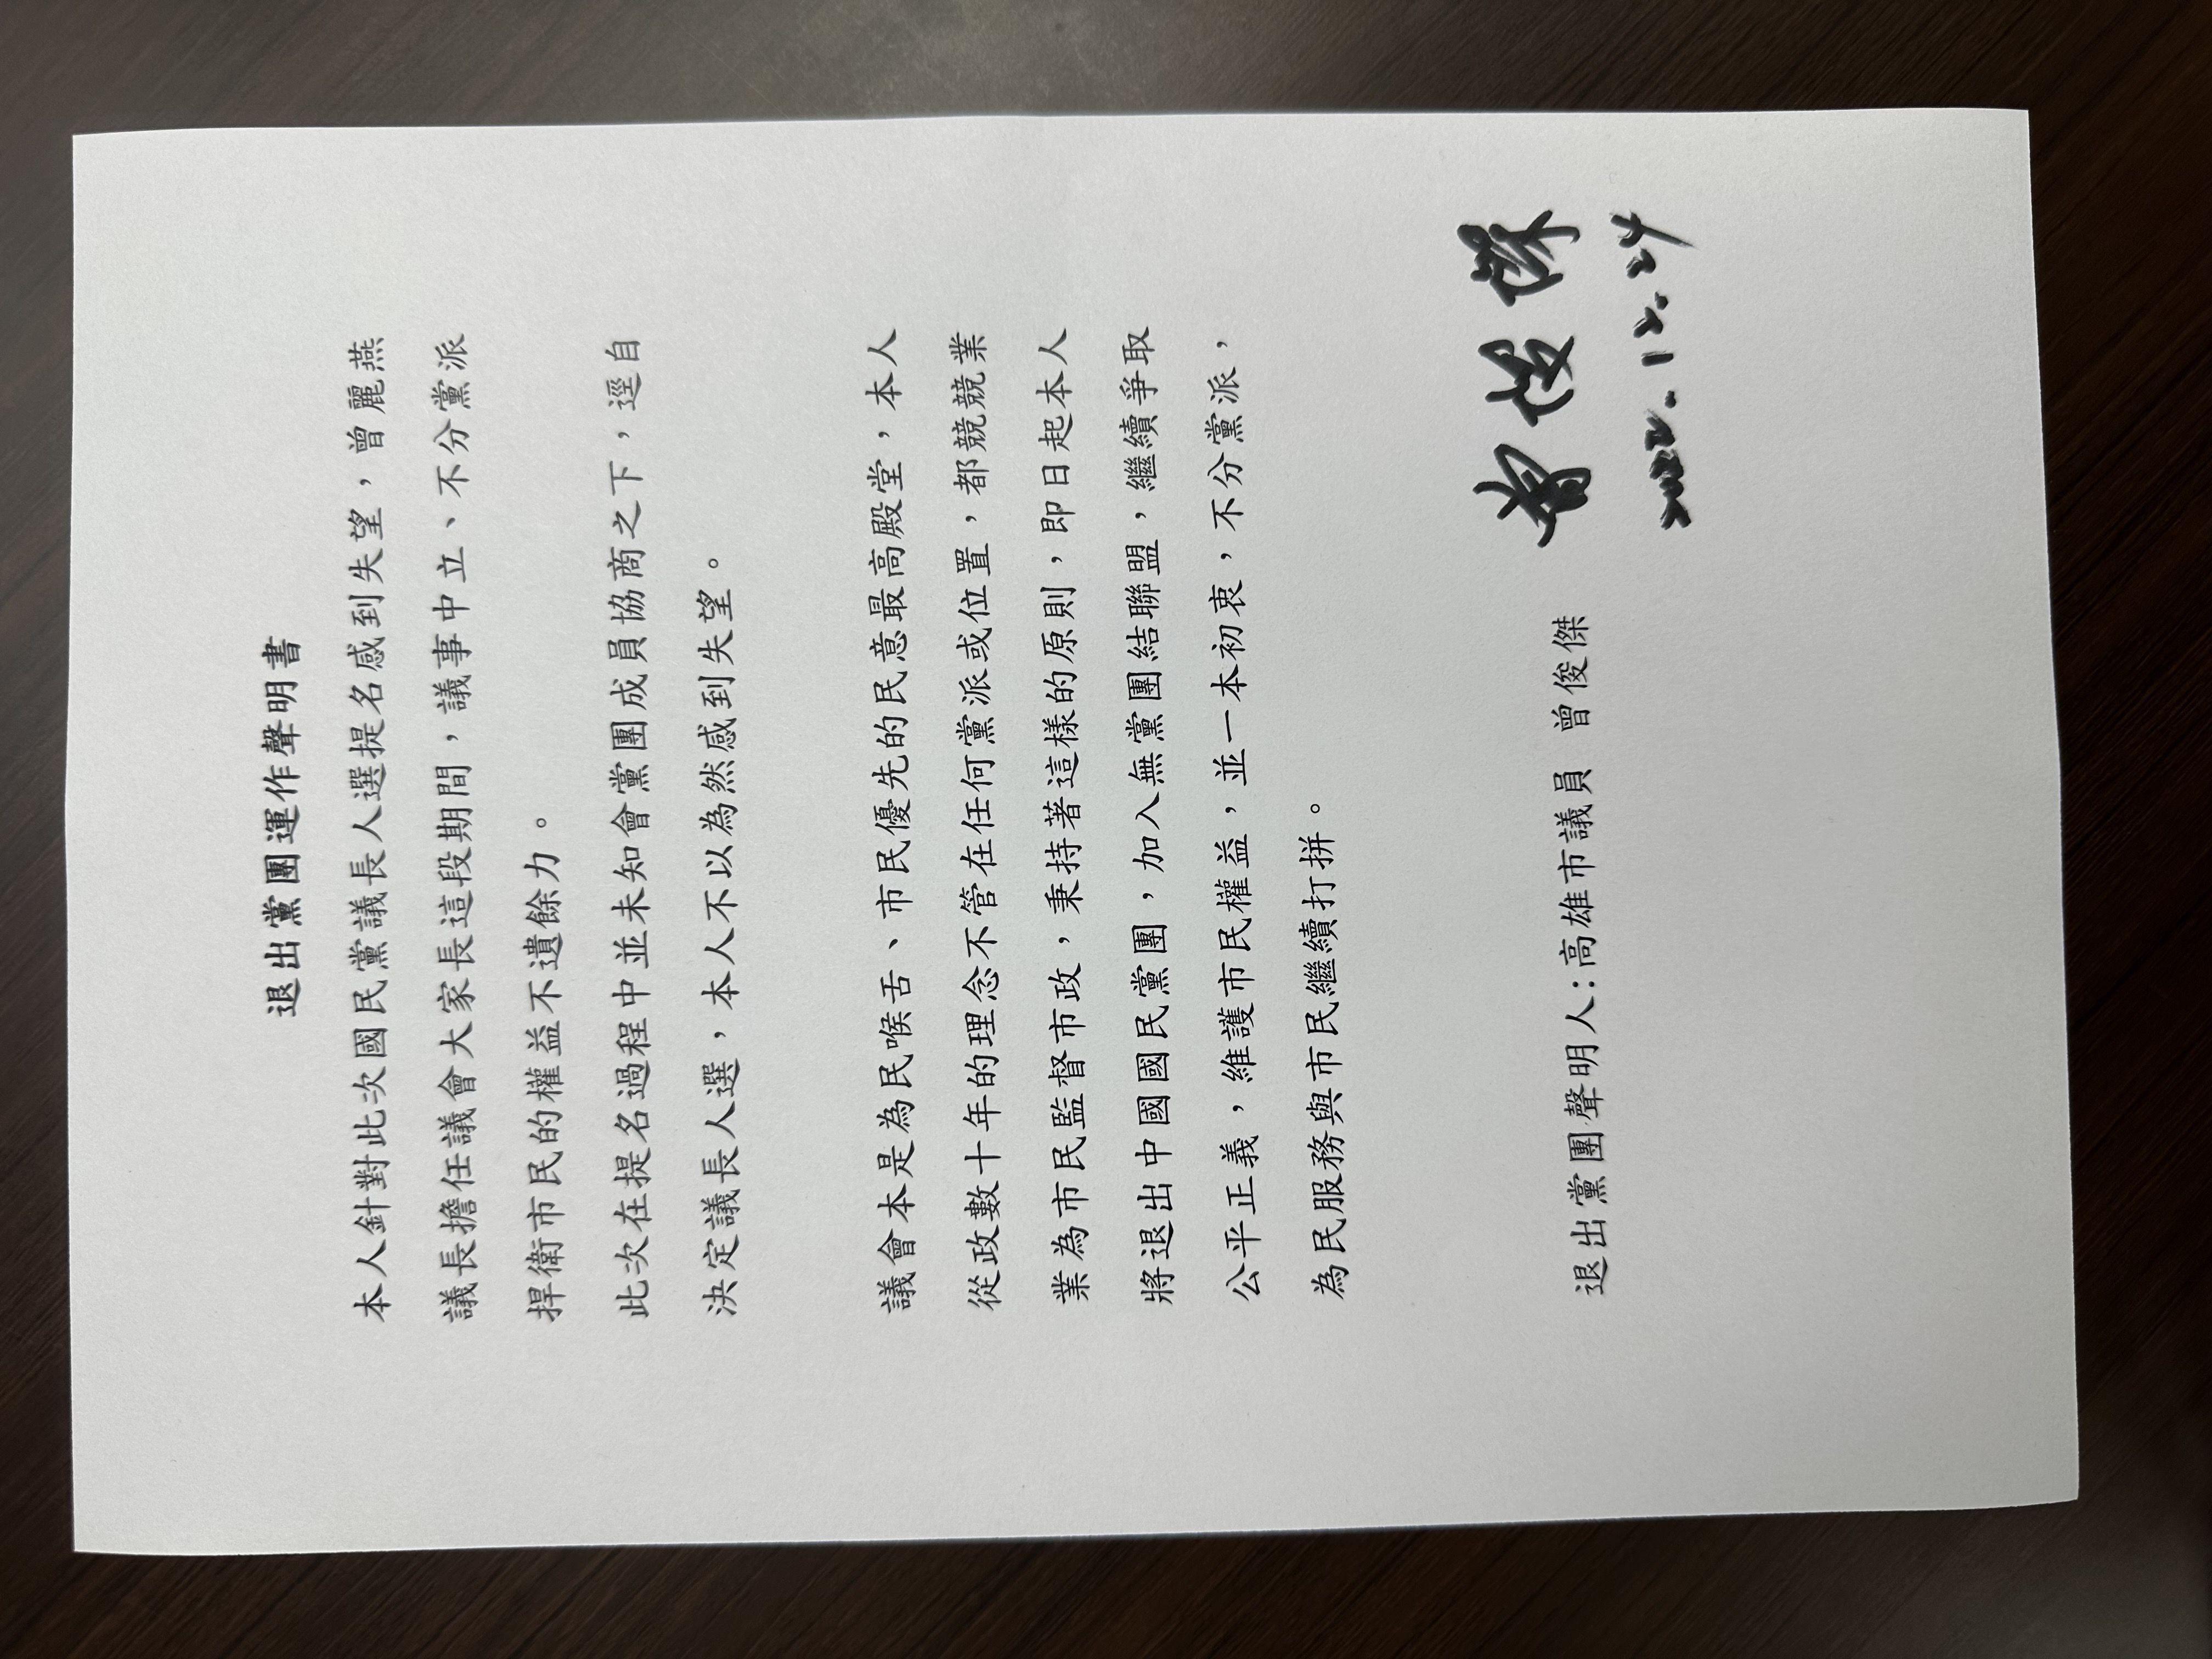 退出黨團運作聲明書
本人針對此次國民黨議長人選提名感到失望，曾麗燕
議長擔任議會大家長這段期間，議事中立、不分黨派
捍衛市民的權益不遺餘力。
此次在提名過程中並未知會黨團成員協商之下，逕自
決定議長人選，本人不以為然感到失望。
議會本是為民喉舌、市民優先的民意最高殿堂，本人
從政數十年的理念不管在任何黨派或位置，都競競業
業為市民監督市政，秉持著這樣的原則，即日起本人
將退出中國國民黨團，加入無黨團結聯盟，繼續爭取
公平正義，維護市民權益，並一本初衷，不分黨派，
為民服務與市民繼續打拼。
退出黨團聲明人:高雄市議員 曾俊傑 曾俊傑
2022.12.24